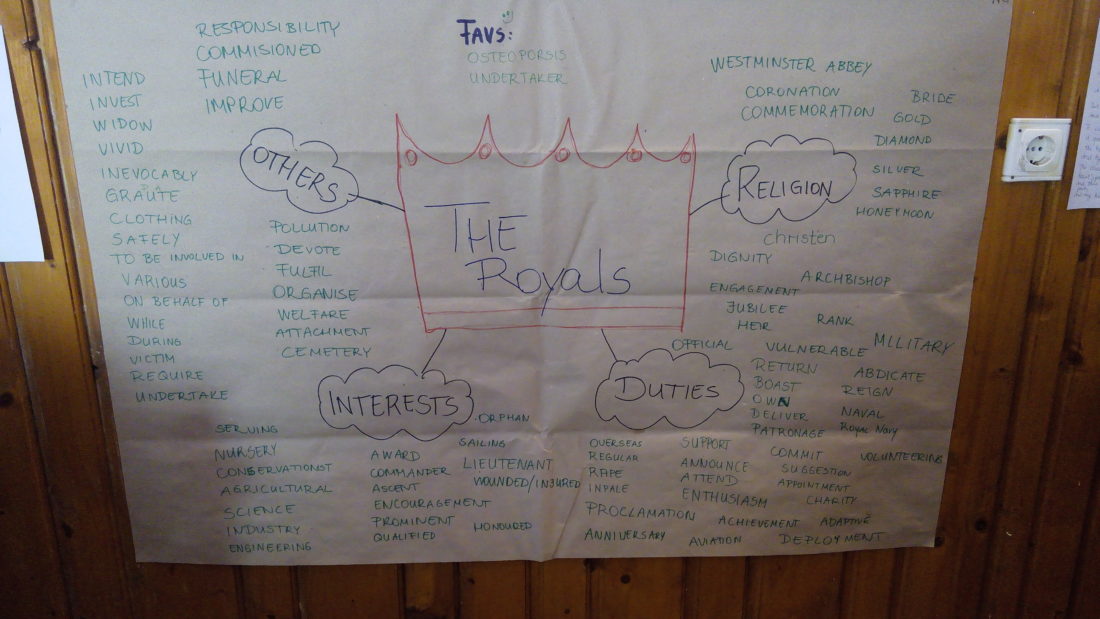 FAVS:
OSTEOPORSIS
UNDERTAKER
RESPONSIBILITY
COMMISIONED
FUNERAL
IMPROVE
INTEND
INVEST
WIDOW
VIVID
INEVOCABLY
GRAÜTE
CLOTHING
SAFELY
TO BE INVOLVED IN
VARIOUS
ON BEHALF OF
WHILE
DURING
VICTIM
REQUIRE
UNDERTAKE
OTHERS
POLLUTION
DEVOTE
FULFIL
ORGANISE
WELFARE
ATTACHMENT
CEMETERY
THE
Royals
WESTMINSTER ABBEY
CORONATION
COMMEMORATION
BRIDE
GOLD
DIAMOND
SILVER
SAPPHIRE
HONEYMOON
RELIGION
christen
DIGNITY
ARCHBISHOP
ENGAGEMENT
JUBILEE
HEIR
RANK
OFFICIAL
VULNERABLE
MILITARY
RETURN
ABDICATE
BOAST
REIGN
OWN
DELIVER
NAVAL
PATRONAGE
Royal Navy
INTERESTS
ORPHAN
SERVING
NURSERY
CONSERVATIONST
AGRICULTURAL
SCIENCE
INDUSTRY
ENGINEERING
AWARD
COMMANDER
ASCENT
ENCOURAGEMENT
PROMINENT
QUALIFIED
SAILING
LIEUTENANT
WOUNDED/INJURED
HONOURED
DUTIES
OVERSEAS
REGULAR
RAPE
INPALE
PROCLAMATION
ANNIVERSARY
SUPPORT
ANNOUNCE
ATTEND
ENTHUSIASM
ACHIEVEMENT
AVIATION
COMMIT
VOLUNTEERING
SUGGESTION
APPOINTMENT
CHARITY
ADAPTIVE
DEPLOYMENT